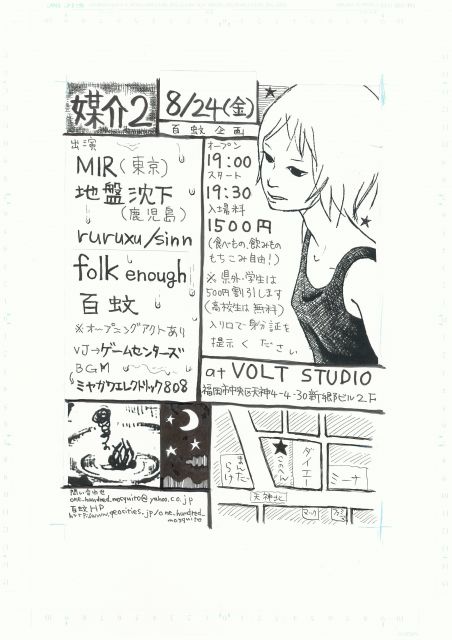 媒介2
8/24(金)
百蚊企画
出演
MIR(東京)
地盤沈下
(鹿児島)
ruruxu/sinn
folk enough
百蚊
※オープニングアクトあり
VJ→ゲームセンターズ
BGM
ミヤガワエレクトリック808
オープン
19:00
スタート
19:30
入場料
1500円
(食べもの、飲みもの
もちこみ自由!)
※県外・学生は
500円割引します
(高校生は無料)
入り口で身分証を
提示ください
at VOLT STUDIO
福岡市中央区天神4-4-30新郷ビル2F
問い合わせ
one_hundred_mosquito@yahoo.co.jp
百蚊HP
http://www.geocities.jp/one_hundred_
mosquito
まんだらけ
このへん
ダイエー
ミーナ
天神北
マック